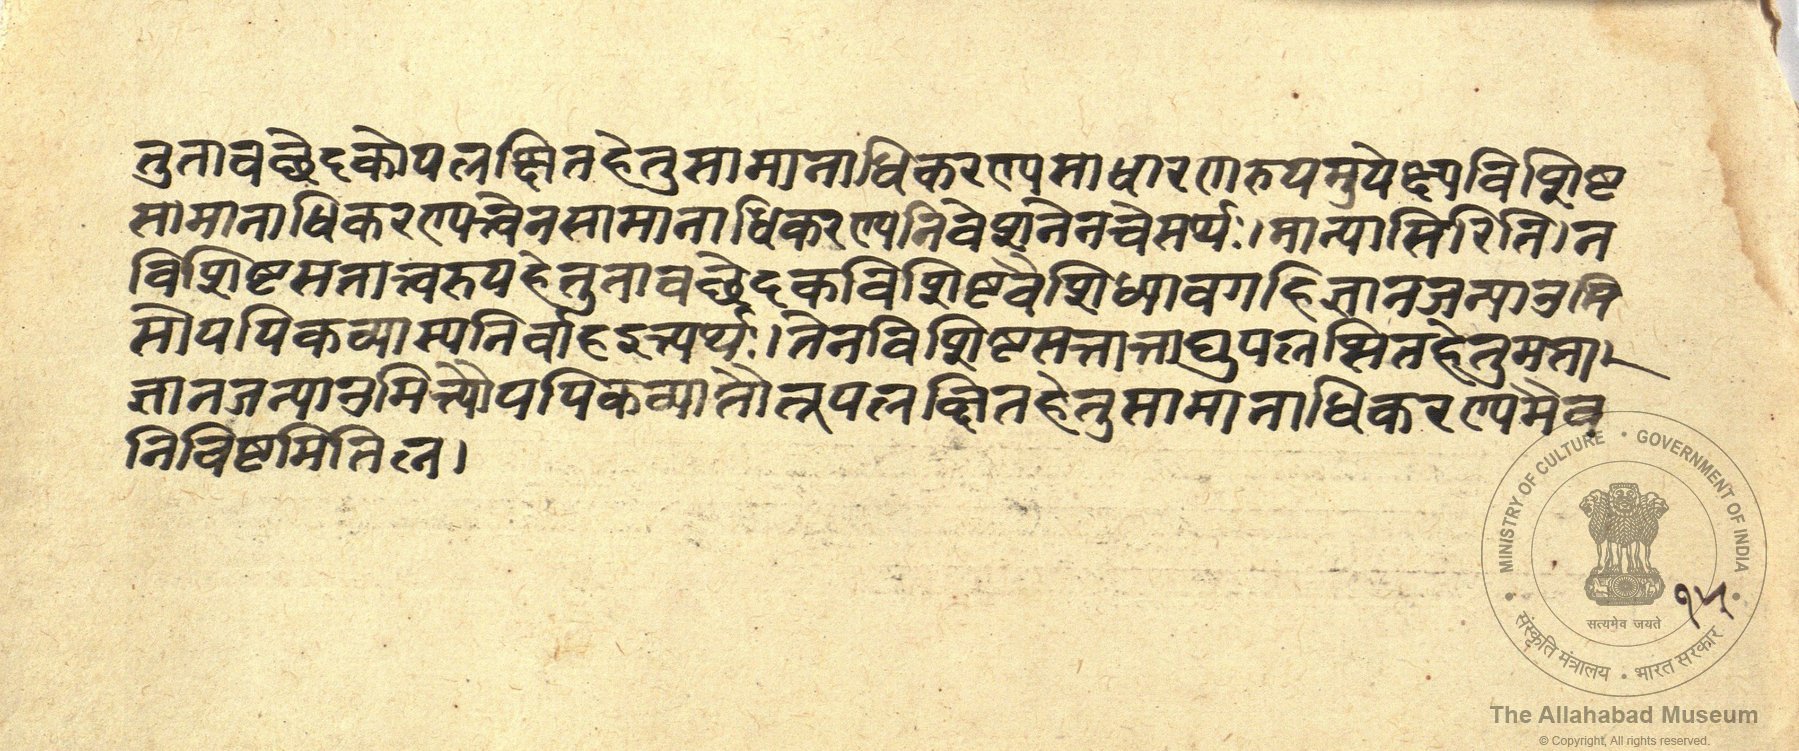 तुतावछेदकोपलक्षितहेतुसामानाधिकरण्यसाधारणरुपमुपेक्ष्यविशिष्ट
सामानाधिकरण्यत्वेनसामानाधिकरण्यनिवेशनेनत्वेसर्थः। सान्यासिरिति। न
विशिष्टसत्तात्त्वरुपहेतुतावछेदकविशिष्टवैशिध्यावगहिज्ञानजन्यानुमि
सौपयिकव्यास्यनिर्वाहइत्यर्थः। तेनविशिष्टसत्तात्ताद्युपलक्षितहेतुमत्ता
ज्ञानजन्यानुमित्यौपयिकव्याप्तौतूपलक्षितहेतुसामानाधिकरण्यमेव
निविष्टमितिलन।
१५
MINISTRY OF CULTURE • GOVERNMENT OF INDIA
सत्यमेव जयते
संस्कृति मंत्रालय • भारत सरकार
The Allahabad Museum
© Copyright, All rights reserved.